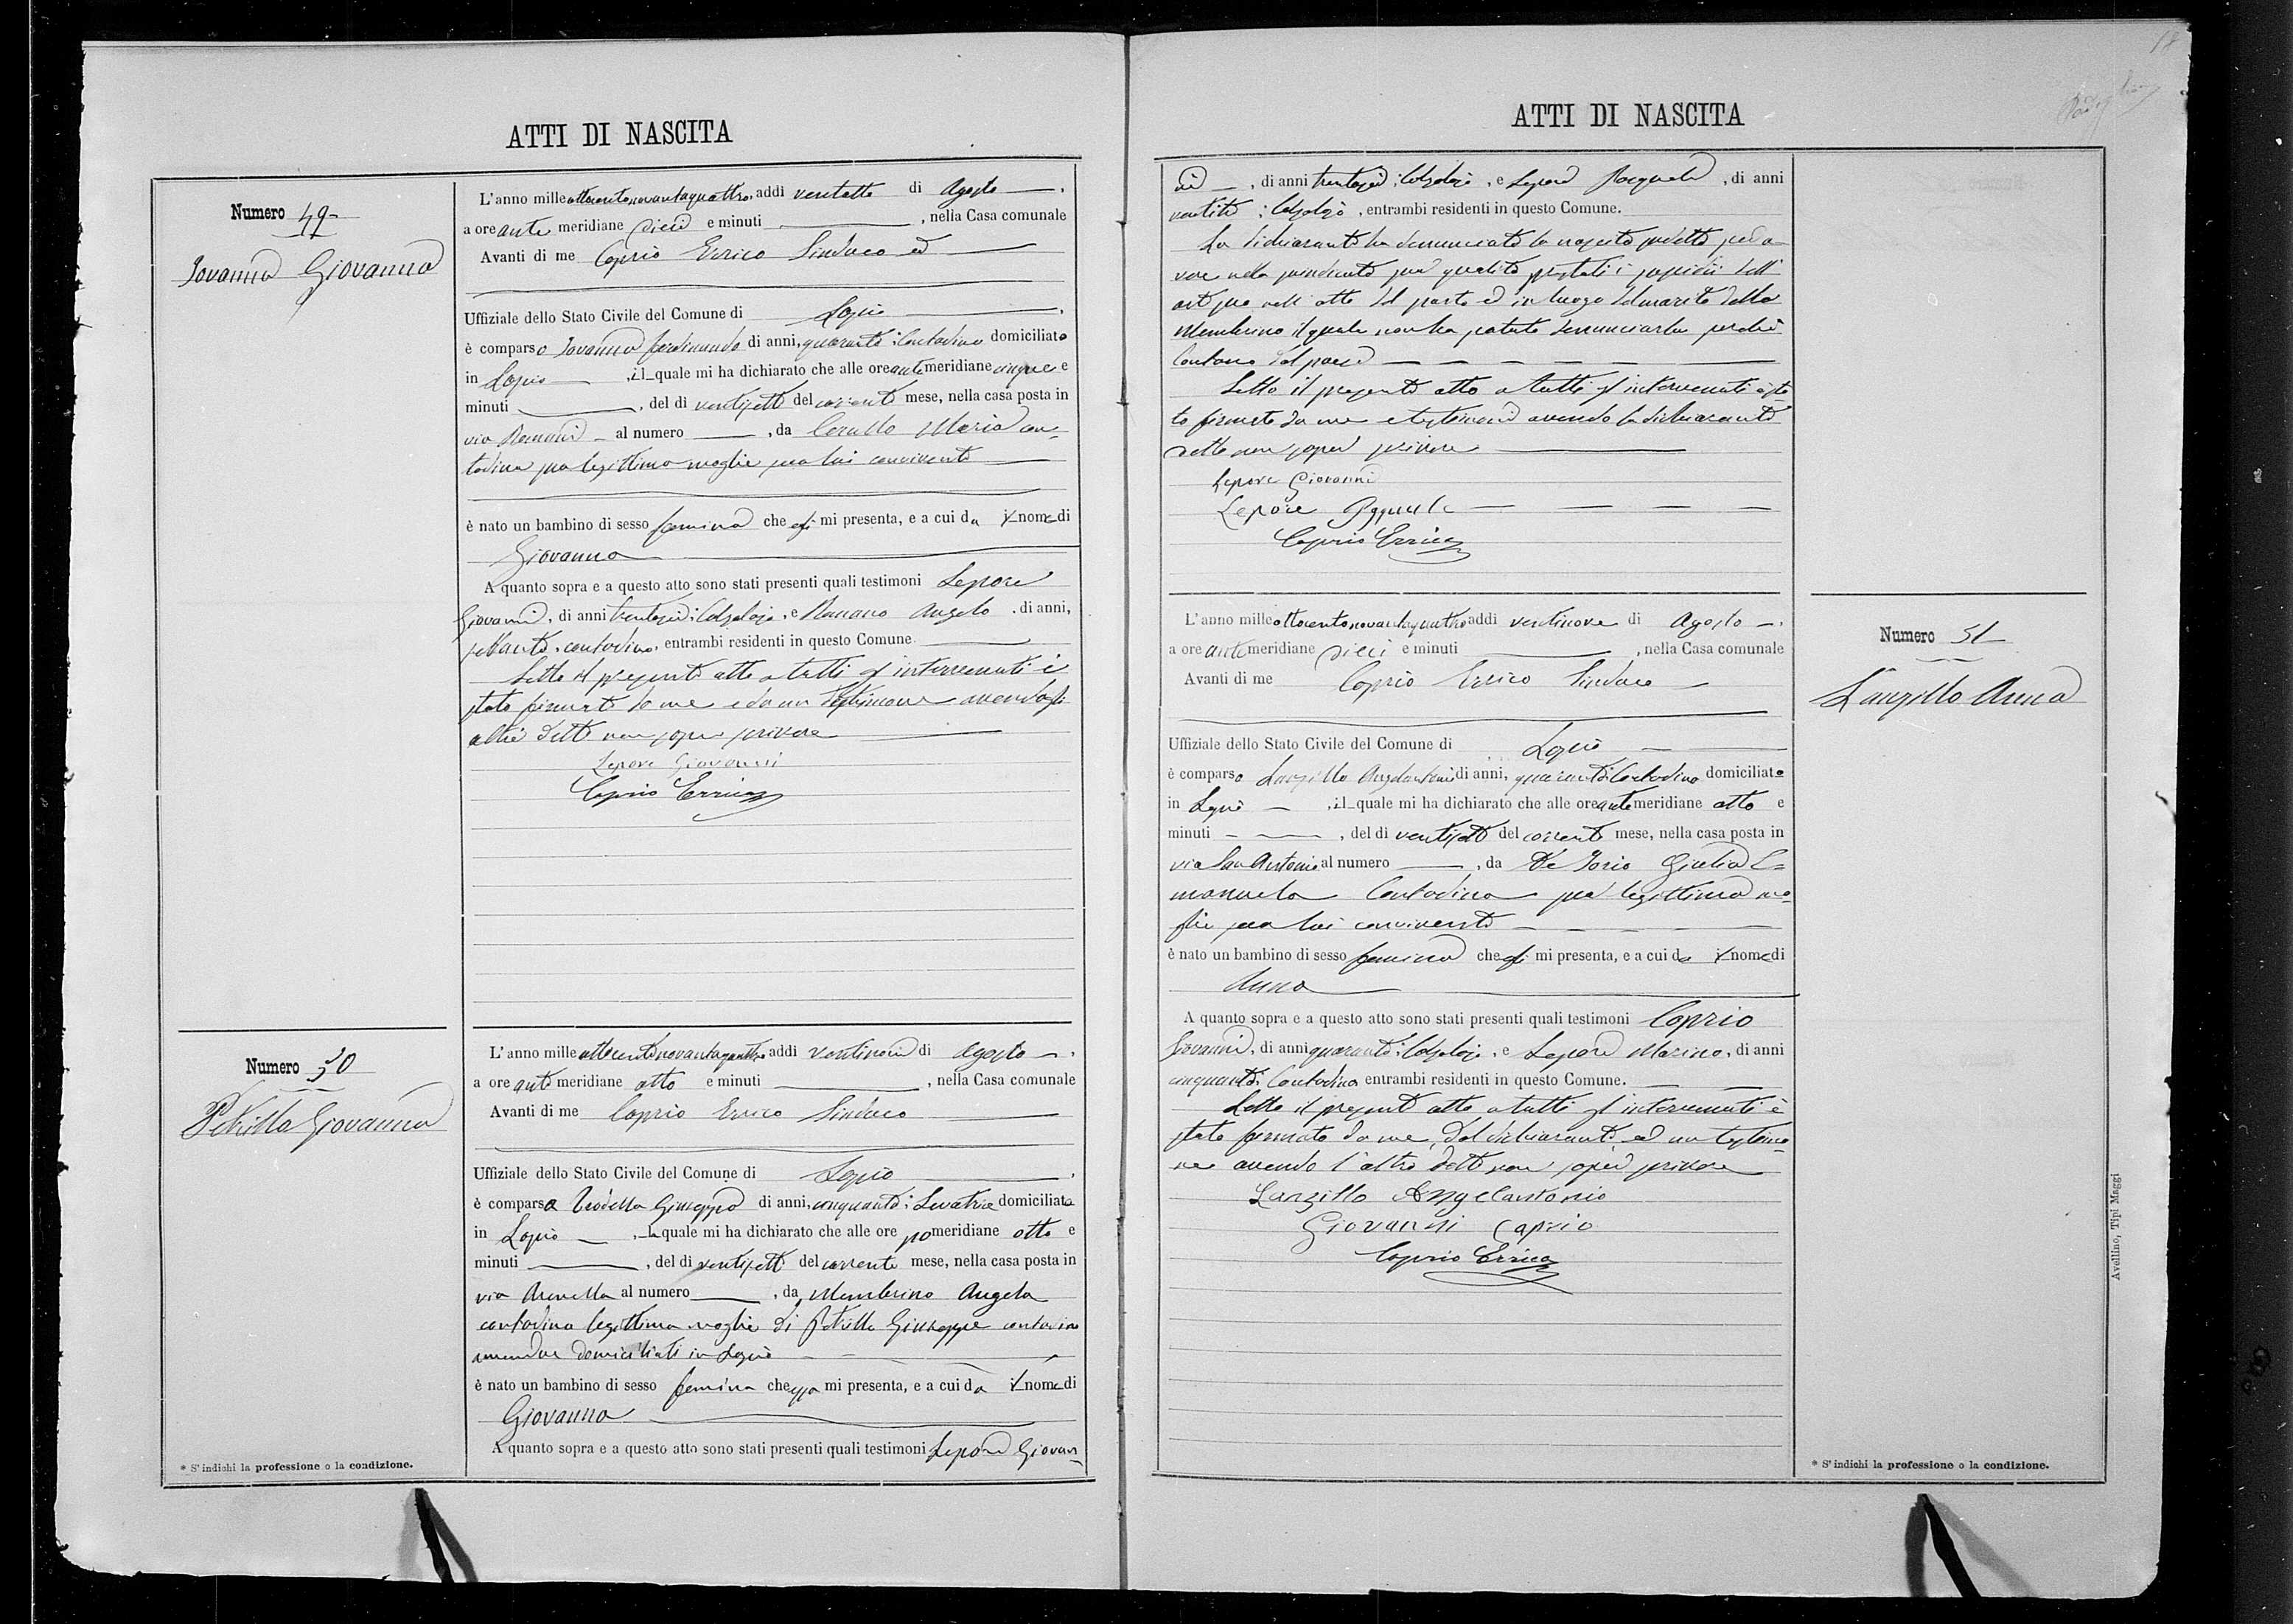 ATTI DI NASCITA
Numero 49
Iovanna Giovanna
L'anno milleottocentonovantaquattro, addì ventotto di Agosto
a ore ante meridiane dieci e minuti , nella Casa comunale
Avanti di me Caprio Errico Sindaco ed
Uffiziale dello Stato Civile del Comune di Lapio
è comparso Iovanna Ferdinando di anni, quaranta; Contadino domiciliato
in Lapio , il quale mi ha dichiarato che alle ore antemeridiane cinque e
minuti , del dì ventisette del corrente mese, nella casa posta in
via Romani al numero , da Cerullo Maria con=
tadina sua legittima moglie seco lui convivente
è nato un bambino di sesso femina che egli mi presenta, e a cui da il nome di
Giovanna
A quanto sopra e a questo atto sono stati presenti quali testimoni Lepore
Giovanni, di anni trentasei; Calzolajo, e Romano Angelo, di anni,
settanta, contadino, entrambi residenti in questo Comune
Letto il presente atto a tutti gl'intervenuti è
stato firmato da me e da un testimone avendo gli
altri detto non saper scrivere
Lepore Giovanni
Caprio Errico
Numero 50
Petrillo Giovanna
L'anno milleottocentonovantaquattro addì ventinove di Agosto
a ore ante meridiane otto e minuti , nella Casa comunale
Avanti di me Caprio Errico Sindaco
Uffiziale dello Stato Civile del Comune di Lapio
è comparsa Giuseppa di anni, cinquanta; Levatrice domiciliata
in Lapio , la quale mi ha dichiarato che alle ore pomeridiane otto e
minuti , del dì ventisette del corrente mese, nella casa posta in
via Arenella al numero , da Membrino Angela
contadina legittima moglie di Petrillo Giuseppe contadino
amendue domiciliati in Lapio
è nato un bambino di sesso femina che essa mi presenta, e a cui da il nome di
Giovanna
A quanto sopra e a questo atto sono stati presenti quali testimoni Lepore Giovan=
* S'indichi la professione o la condizione.
ATTI DI NASCITA
ni , di anni trentasei; Calzolajo, e Lepore Pasquale, di anni
ventitre; Calzolajo, entrambi residenti in questo Comune.
La dichiarante ha denunciato la nascita predetta per a=
ver nella suindicata sua qualità prestati i sussidii dell'
arte sua nell'atto del parto ed in luogo del marito della
Membrino il quale non ha potuto denunciarla perchè
lontano dal paese
Letto il presente atto a tutti gl'intervenuti è sta=
to firmato da me e testimoni avendo la dichiarante
detto non saper scrivere
Lepore Giovanni
Lepore Pasquale
Caprio Errico
L'anno milleottocentonovantaquattro addì ventinove di Agosto
a ore antemeridiane dieci e minuti , nella Casa comunale
Avanti di me Caprio Errico Sindaco
Uffiziale dello Stato Civile del Comune di Lapio
è comparso Lanzillo Angelantonio di anni, quaranta; Contadino domiciliato
in Lapio , il quale mi ha dichiarato che alle ore antemeridiane otto e
minuti , del dì ventisette del corrente mese, nella casa posta in
via San Antonio al numero , da De Iorio Giulia E=
manuela Contadina sua legittima mo=
glie seco lui convivente
è nato un bambino di sesso femina che egli mi presenta, e a cui da il nome di
Anna
A quanto sopra e a questo atto sono stati presenti quali testimoni Caprio
Giovanni, di anni quaranta; Calzolajo, e Lepore Marino, di anni
cinquanta; Contadino entrambi residenti in questo Comune.
Letto il presente atto a tutti gl'intervenuti è
stato firmato da me, dal dichiarante ed un testimo=
ne avendo l'altro detto non saper scrivere
Lanzillo Angelantonio
Giovanni Caprio
Caprio Errico
Numero 51
Lanzillo Anna
* S'indichi la professione o la condizione.
Avellino, Tipi Maggi